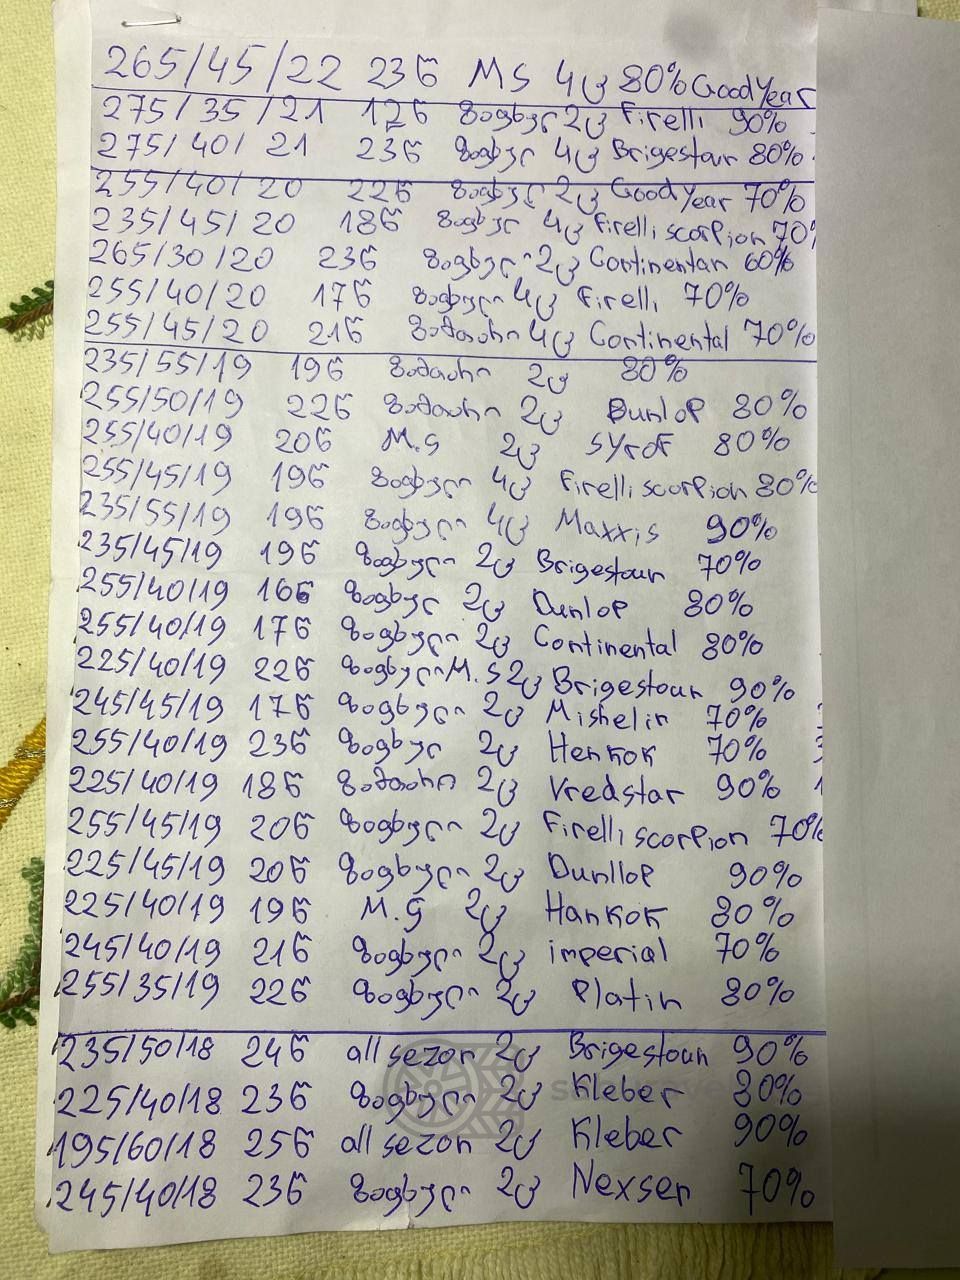 265/45/22 23წ MS 4ც 80% GoodYear
275/35/21 12წ ზაფხულ 2ც Firelli 90%
275/40/21 23წ ზაფხულ 4ც Brigestour 80%
255/40/20 22წ ზაფხულ 2ც GoodYear 70%
235/45/20 18წ ზაფხულ 4ც Firelli scorpion 70%
265/30/20 23წ ზაფხული 2ც Continentan 60%
255/40/20 17წ ზაფხული 4ც Firelli 70%
255/45/20 21წ ზამთარი 4ც Continental 70%
235/55/19 19წ ზამთარი 2ც 80%
255/50/19 22წ ზამთარი 2ც Dunlop 80%
255/40/19 20წ M.S 2ც 80%
255/45/19 19წ ზაფხული 4ც Firelli scorpion 80%
235/55/19 19წ ზაფხული 4ც Maxxis 90%
235/45/19 19წ ზაფხული 2ც Brigestoun 70%
255/40/19 16წ ზაფხულ 2ც Dunlop 80%
255/40/19 17წ ზაფხული 2ც Continental 80%
225/40/19 22წ ზაფხული M.S 2ც Brigestoun 90%
245/45/19 17წ ზაფხული 2ც Mishelin 70%
255/40/19 23წ ზაფხულ 2ც Henkok 70%
225/40/19 18წ ზამთარი 2ც Vredstar 90%
255/45/19 20წ ზაფხული 2ც Firelli scorpion 70%
225/45/19 20წ ზაფხული 2ც Dunllop 90%
225/40/19 19წ M.S 2ც Hankok 80%
245/40/19 21წ ზაფხული 2ც imperial 70%
255/35/19 22წ ზაფხული 2ც Platin 80%
235/50/18 24წ all sezon 2ც Brigestoun 90%
225/40/18 23წ ზაფხული 2ც Kleber 80%
195/60/18 25წ all sezon 2ც Kleber 90%
245/40/18 23წ ზაფხული 2ც Nexsen 70%